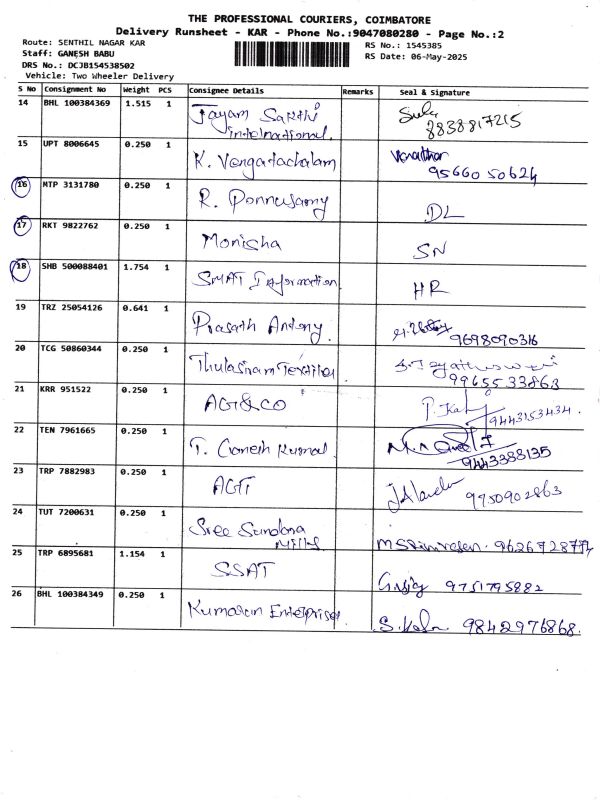 THE PROFESSIONAL COURIERS, COIMBATORE
Delivery Runsheet - KAR - Phone No.:9047080280 - Page No.:2
Route: SENTHIL NAGAR KAR
RS No.: 1545385
Staff: GANESH BABU
RS Date: 06-May-2025
DRS No.: DCJB154538502
Vehicle: Two Wheeler Delivery
S No Consignment No Weight PCS Consignee Details Remarks Seal & signature
14 BHL 100384369 1.515 1 Jayam Sakthi
international.
8838817215
15 UPT 8006645 0.250 1 K. Vengatachalam
95660 50624
16 MTP 3131780 0.250 1 R. Ponnusamy DL
17 RKT 9822762 0.250 1 Monisha SN
18 SHB 500088401 1.754 1 SMAT Information HR
19 TRZ 25054126 0.641 1 Prasath Antony. 9698090316
20 TCG 50860344 0.250 1 Thulasiram Textiles
9965533863
21 KRR 951522 0.250 1 AGT&CO 9443153434.
22 TEN 7961665 0.250 1 T. Ganesh Kumar.
9443388135
23 TRP 7882983 0.250 1 AGT 9750902863
24 TUT 7200631 0.250 1 Sree Sundara
Mills. M Srinivasan. 9626728774
25 TRP 6895681 1.154 1 SSAT 9751795882
26 BHL 100384349 0.250 1 Kumaran Enterprises 9842976868.